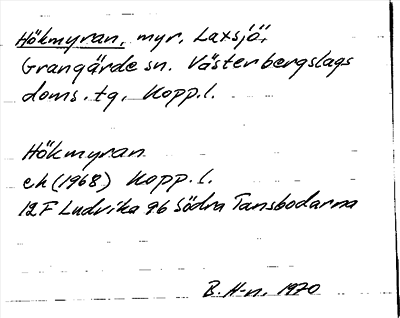 Hökmyran, myr, Laxsjö,
Grangärde sn. Västerbergslags
doms. tg, Kopp.l.
Hökmyran
ek (1968) Kopp.l.
12F Ludvika 9b Södra Tansbodarna
B. H-n, 1970